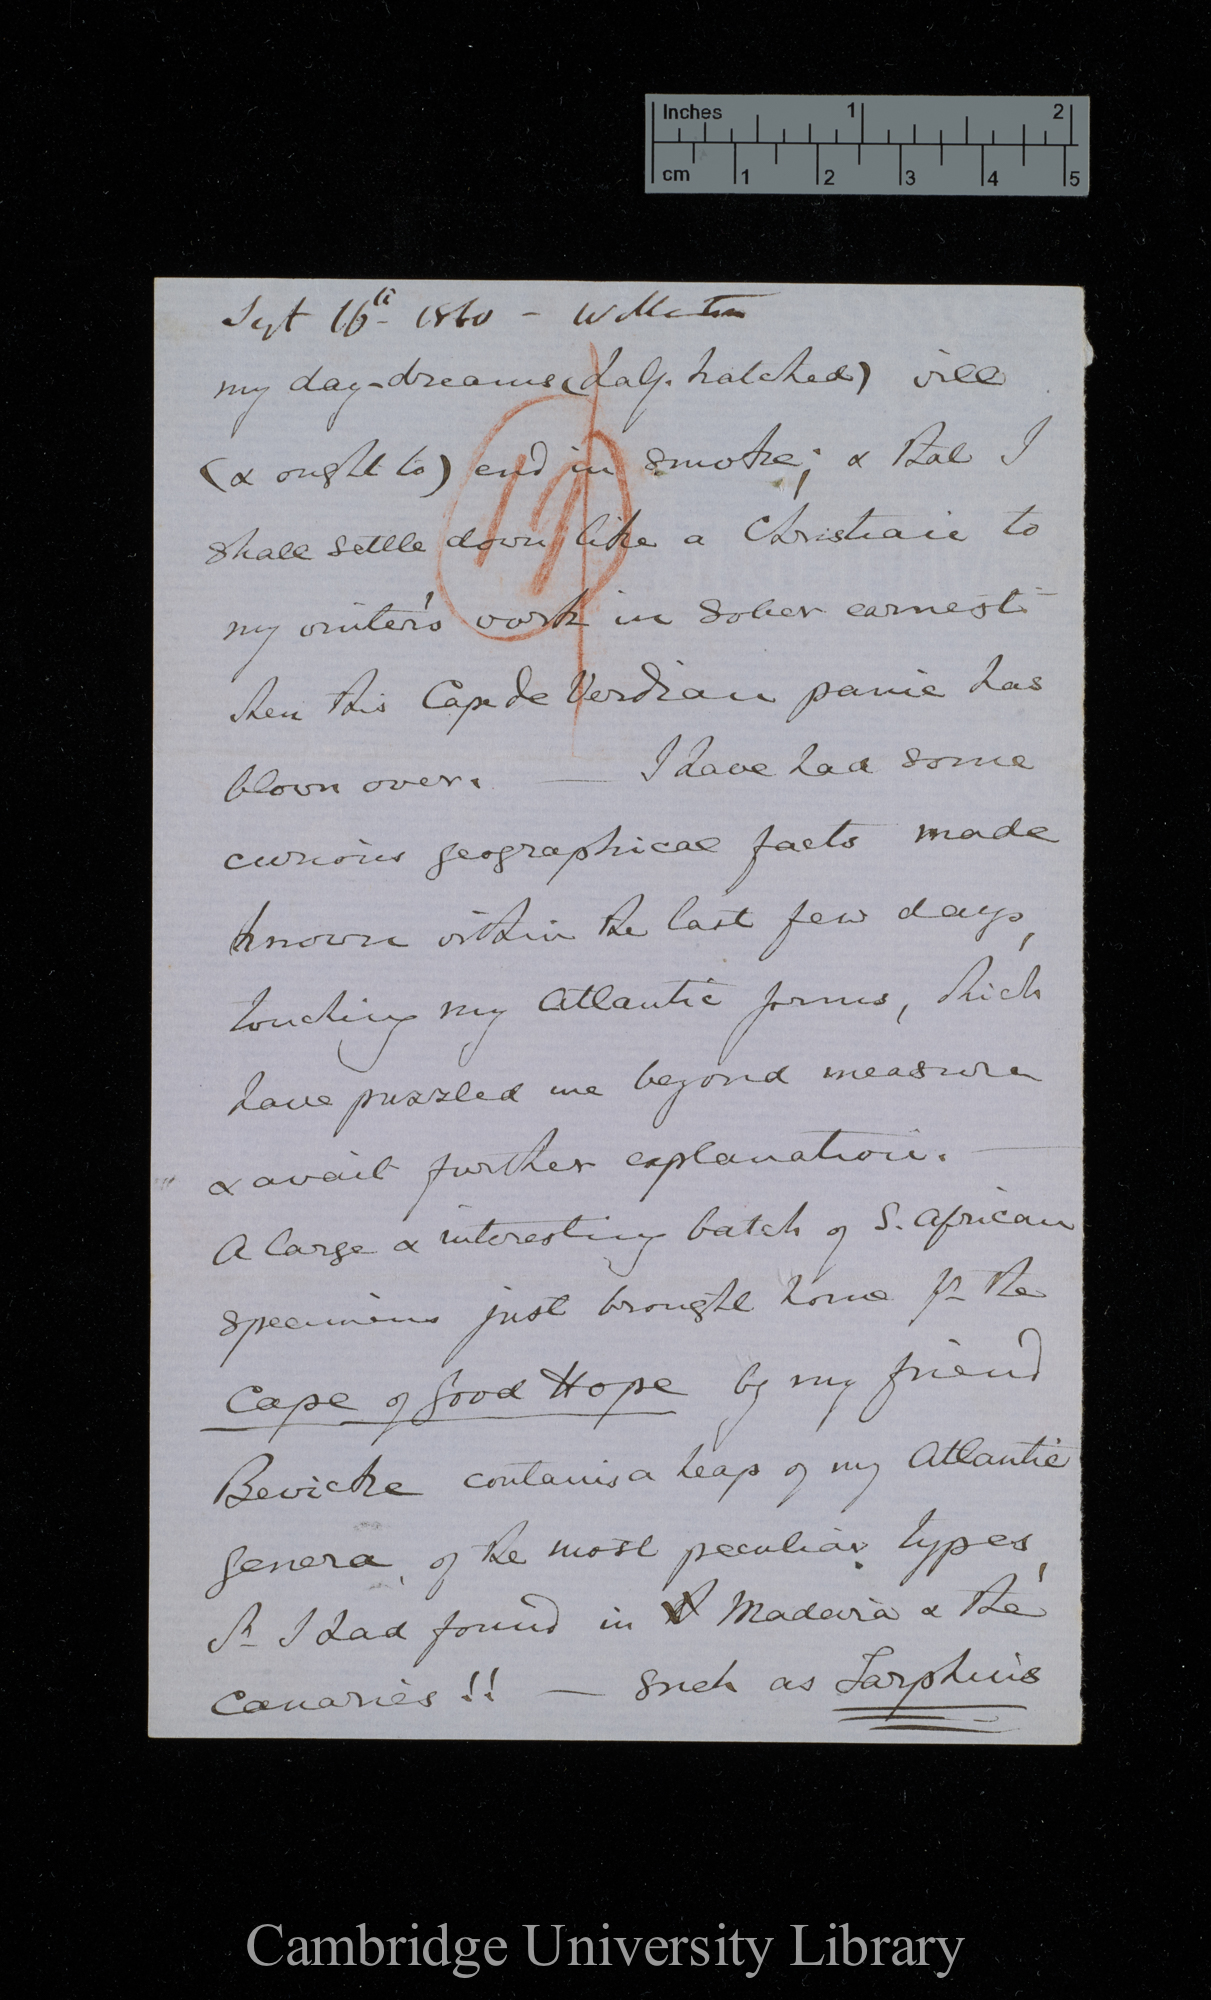 Inches 1 2
cm 1 2 3 4 5
Sept 16th 1860 - Wollaston
my day-dreams (half-hatched) will
(& ought to) end in smoke; & that I
shall settle down like a Christian to
my winter's work in sober earnest
when this Cape de Verdian panic has
blown over. — I have had some
curious geographical facts made
known within the last few days,
touching my Atlantic forms, which
have puzzled me beyond measure
& await further explanation. —
A large & interesting batch of S. African
specimens just brought home fm the
Cape of Good Hope by my friend
Bewicke contains a heap of my Atlantic
genera, of the most peculiar types,
wh I had found in Madeira & the
Canaries!! — such as Tarphius
19
Cambridge University Library